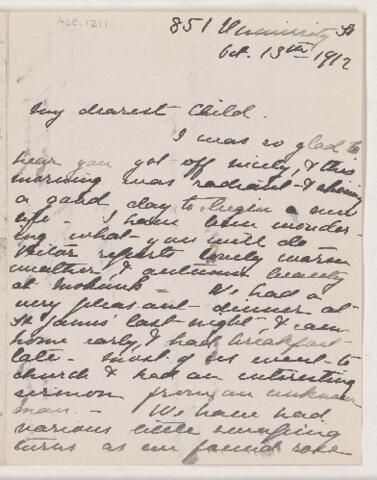 ACC. 1211
851 University St
Oct. 13th 1912
My dearest Child.
I was so glad to
hear you got off nicely, & this
morning was radiant - & shining
a good day to begin a new
life - I have been wonder-
ing what you will do
Victor reports lovely warm
weather, & autumn beauty
at - We had a
very pleasant dinner at
St James' last night - & came
home early, & had breakfast
late - most of us went to
church & had an interesting
sermon from an unknown
man - We have had
various little
turns as we found some